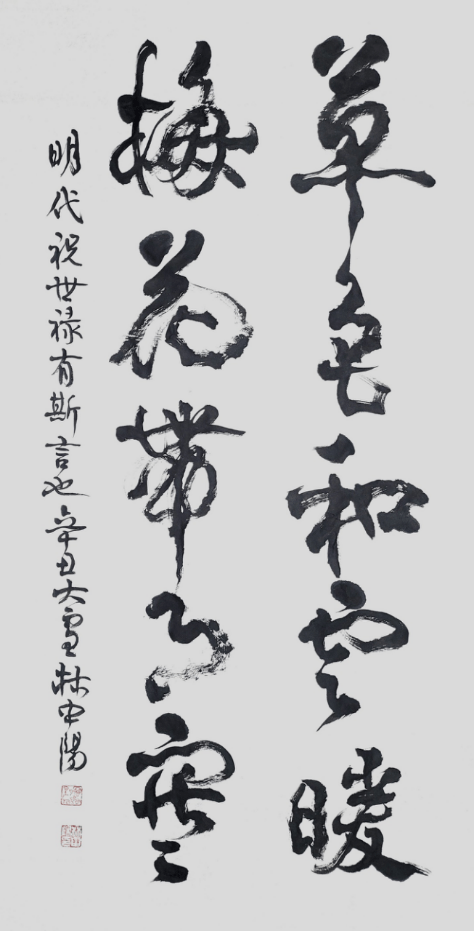 草色和雲暖
梅花帶月寒
明代祝世祿有斯言也辛丑大雪林中陽